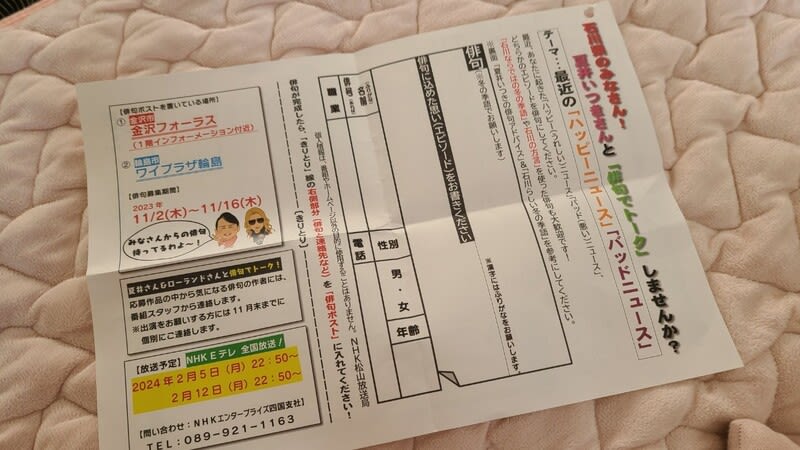 石川県のみなさん！
夏井いつきさんと「俳句でトーク」しませんか？
テーマ…最近の「ハッピーニュース」「バッドニュース」
最近、あなたに起きた「ハッピー(うれしい)ニュース」「バッド(悪い)ニュース」、
どちらかのエピソードを俳句にしてください。
「石川ならではの冬の季語」や「石川の方言」を使った俳句も大歓迎です！
※裏面「夏井いつきの俳句アドバイス」&「石川らしい冬の季語」を参考にしてください。
俳句 ※冬の季語でお願いします
※漢字にはふりがなをお願いします。
俳句に込めた想い(エピソード)をお書きください
名前
俳号
職業
性別
男・女
年齢
電話
個人情報は、番組やホームページ以外の目的に使用することはありません。NHK松山放送局
俳句が完成したら、「きりとり」線の右側部分(俳句と連絡先など)を「俳句ポスト」に入れてください！
【きりとり】
【俳句ポストを置いている場所】
① 金沢市
金沢フォーラス
(1階インフォーメーション付近)
② 輪島市
ワイプラザ輪島
【俳句募集期間】
2023年
11/2(木)～11/16(木)
みなさんからの俳句
待ってるわよ～！
夏井さん&ローランドさんと俳句でトーク！
応募作品の中から気になる俳句の作者には、
番組スタッフから連絡します。
※出演をお願いする方には11月末までに
個別にご連絡します。
【放送予定】NHK Eテレ 全国放送！
2024年2月5日(月)22:50～
2月12日(月)22:50～
【問い合わせ:NHKエンタープライズ四国支社】
TEL:089-921-1163